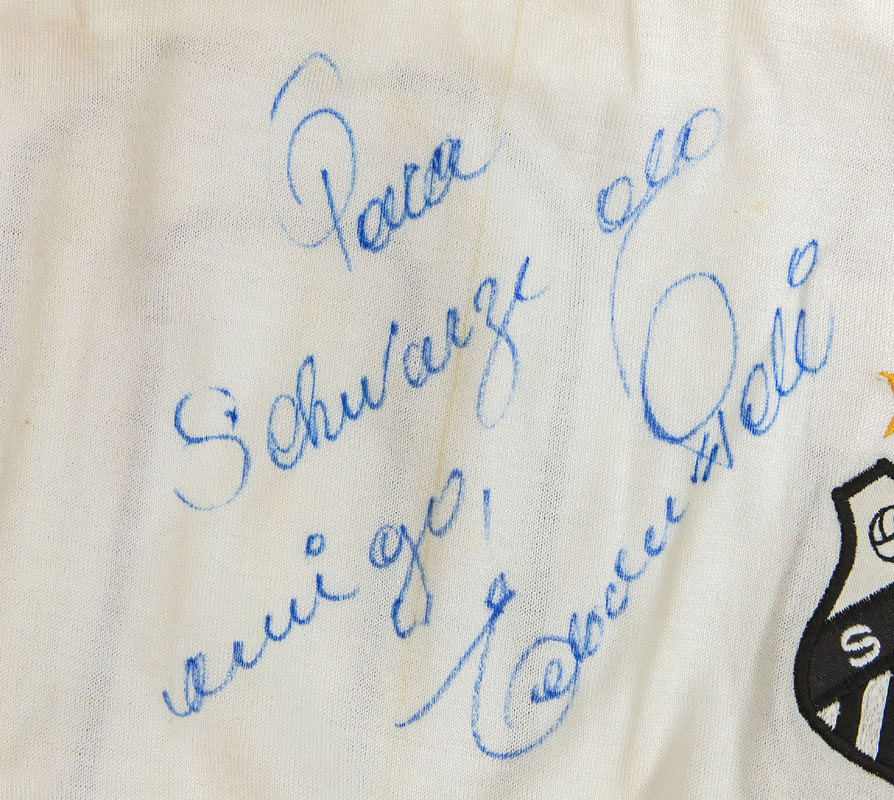 Para
Schwarze
amigo,
Edson = Pelé
S